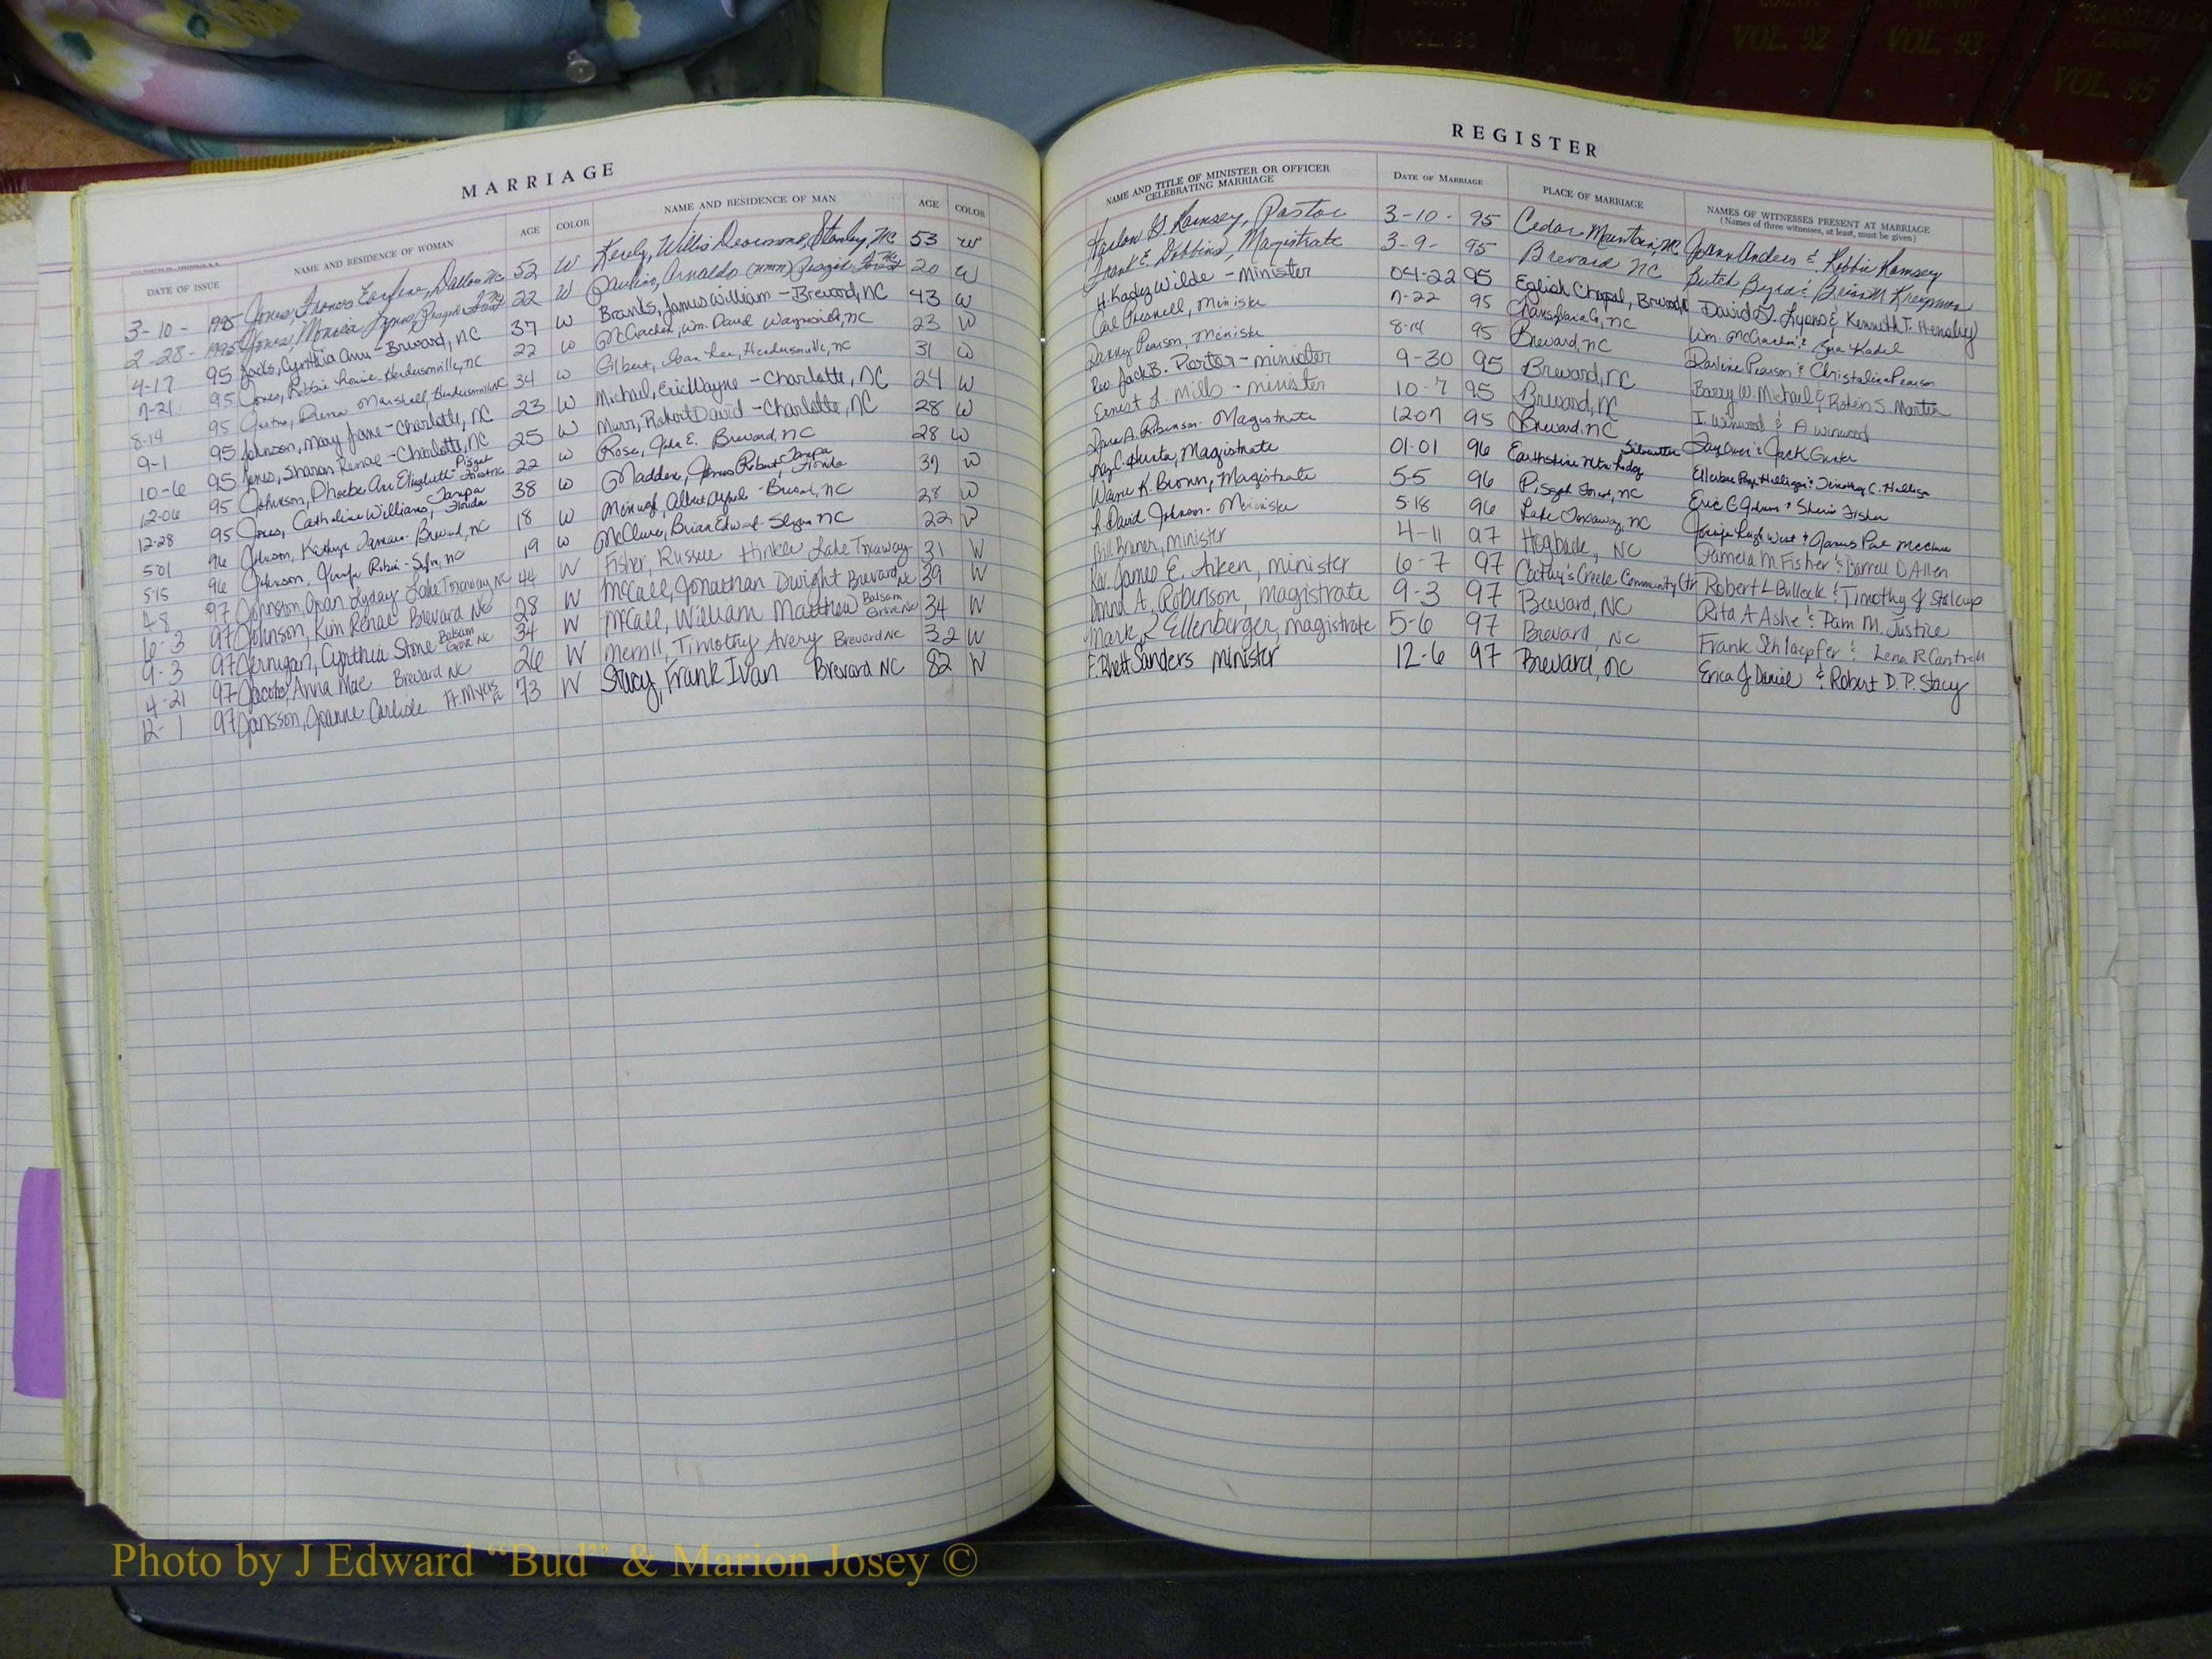 VOL. 90
VOL. 91
COUNTY
VOL. 92
COUNTY
VOL. 93
TRANSYLVANIA
COUNTY
VOL. 95
MARRIAGE
REGISTER
DATE OF ISSUE NAME AND RESIDENCE OF WOMAN AGE COLOR NAME AND RESIDENCE OF MAN AGE COLOR
NAME AND TITLE OF MINISTER OR OFFICER CELEBRATING MARRIAGE DATE OF MARRIAGE PLACE OF MARRIAGE NAMES OF WITNESSES PRESENT AT MARRIAGE
(Names of three witnesses, at least, must be given)
3-10- 1995 Jones, Frances Earlene, Dallas NC 52 W Willis Desmond, Stanley, NC 53 W Harlon G. Ramsey, Pastor 3-10- 95 Cedar Mountain, NC Joann Anders & Robbie Ramsey
2-28- 1995 Jones, Monica Pisgah Forest NC 22 W Arnaldo (NMN) Pisgah Forest NC 20 W Frank E. Dobbins, Magistrate 3-9- 95 Brevard NC Butch Byrd & Brian M
4-17 95 Cynthia Ann - Brevard, NC 37 W James William - Brevard, NC 43 W H. Kadey Wilde - Minister 04-22 95 English Chapel, Brevard David G. Lyons & Kenneth T. Hensley
7-21 95 Jones, Robbie Louise Hendersonville, NC 22 W McCracken, Wm. David Waynesville, NC 23 W Carl Presnell, Minister 7-22 95 Transylvania Co, NC Wm. McCracken &
8-14 95 Marshall, Hendersonville NC 34 W Gilbert, Lee, Hendersonville, NC 31 W Danny Pearson, Minister 8-14 95 Brevard, NC Pearson & Christaline Pearson
9-1 95 Johnson, Mary Jane - Charlotte, NC 23 W Michael, Eric Wayne - Charlotte, NC 24 W Rev. Jack B. Porter - minister 9-30 95 Brevard, NC Barry W. Michael & Robin S. Martin
10-6 95 Jones, Sharon Renae - Charlotte, NC 25 W Murr, Robert David - Charlotte, NC 28 W Ernest L. Mills - minister 10-7 95 Brevard, NC I. Winwood & A. Winwood
12-06 95 Johnson, Phoebe Ann Elizabeth - Pisgah Forest NC 22 W Rose, John E. Brevard, NC 28 W A. Robinson - Magistrate 12-07 95 Brevard, NC & Jack
12-28 95 Jones, Catherine Williams, Tampa Florida 38 W Madden, James Robert Tampa, Florida 37 W Magistrate 01-01 96 Earthshine Mtn Lodge &
5-01 96 Johnson, Kathryn Brevard, NC 18 W Brevard, NC 28 W Wayne K. Brown, Magistrate 5-5 96 Pisgah Forest, NC & Timothy C.
5-15 96 Johnson, 19 W McClure, Brian Edward NC 22 W R. David Johnson - Minister 5-18 96 Lake Toxaway, NC West & James McClure
4-8 97 Johnson, Joan Lyday Lake Toxaway NC 44 W Fisher, Russell Hinkle Lake Toxaway 31 W Bill Bruner, minister 4-11 97 Hogback, NC Pamela M Fisher & Darrell D Allen
6-3 97 Johnson, Kim Renae Brevard NC 28 W McCall, Jonathan Dwight Brevard NC 39 W Rev. James E. Aiken, minister 6-7 97 Cathy's Creek Community Ctr Robert L Bullock & Timothy J Stalcup
9-3 97 Jernigan, Cynthia Stone Balsam Grove NC 34 W McCall, William Matthew Balsam Grove NC 34 W Donna A. Robinson, magistrate 9-3 97 Brevard, NC Rita A Ashe & Pam M. Justice
4-21 97 Jacobs, Anna Mae Brevard NC 26 W Merrill, Timothy Avery Brevard NC 32 W Mark R Ellenberger, magistrate 5-6 97 Brevard, NC Frank Schlaepfer & Lena R Cantrell
12-1 97 Jansson, Joanne Carlisle Ft. Myers FL 73 W Stacy, Frank Ivan Brevard NC 82 W F. Rhett Sanders minister 12-6 97 Brevard, NC Erica J Daniel & Robert D. P. Stacy
Photo by J Edward “Bud” & Marion Josey ©